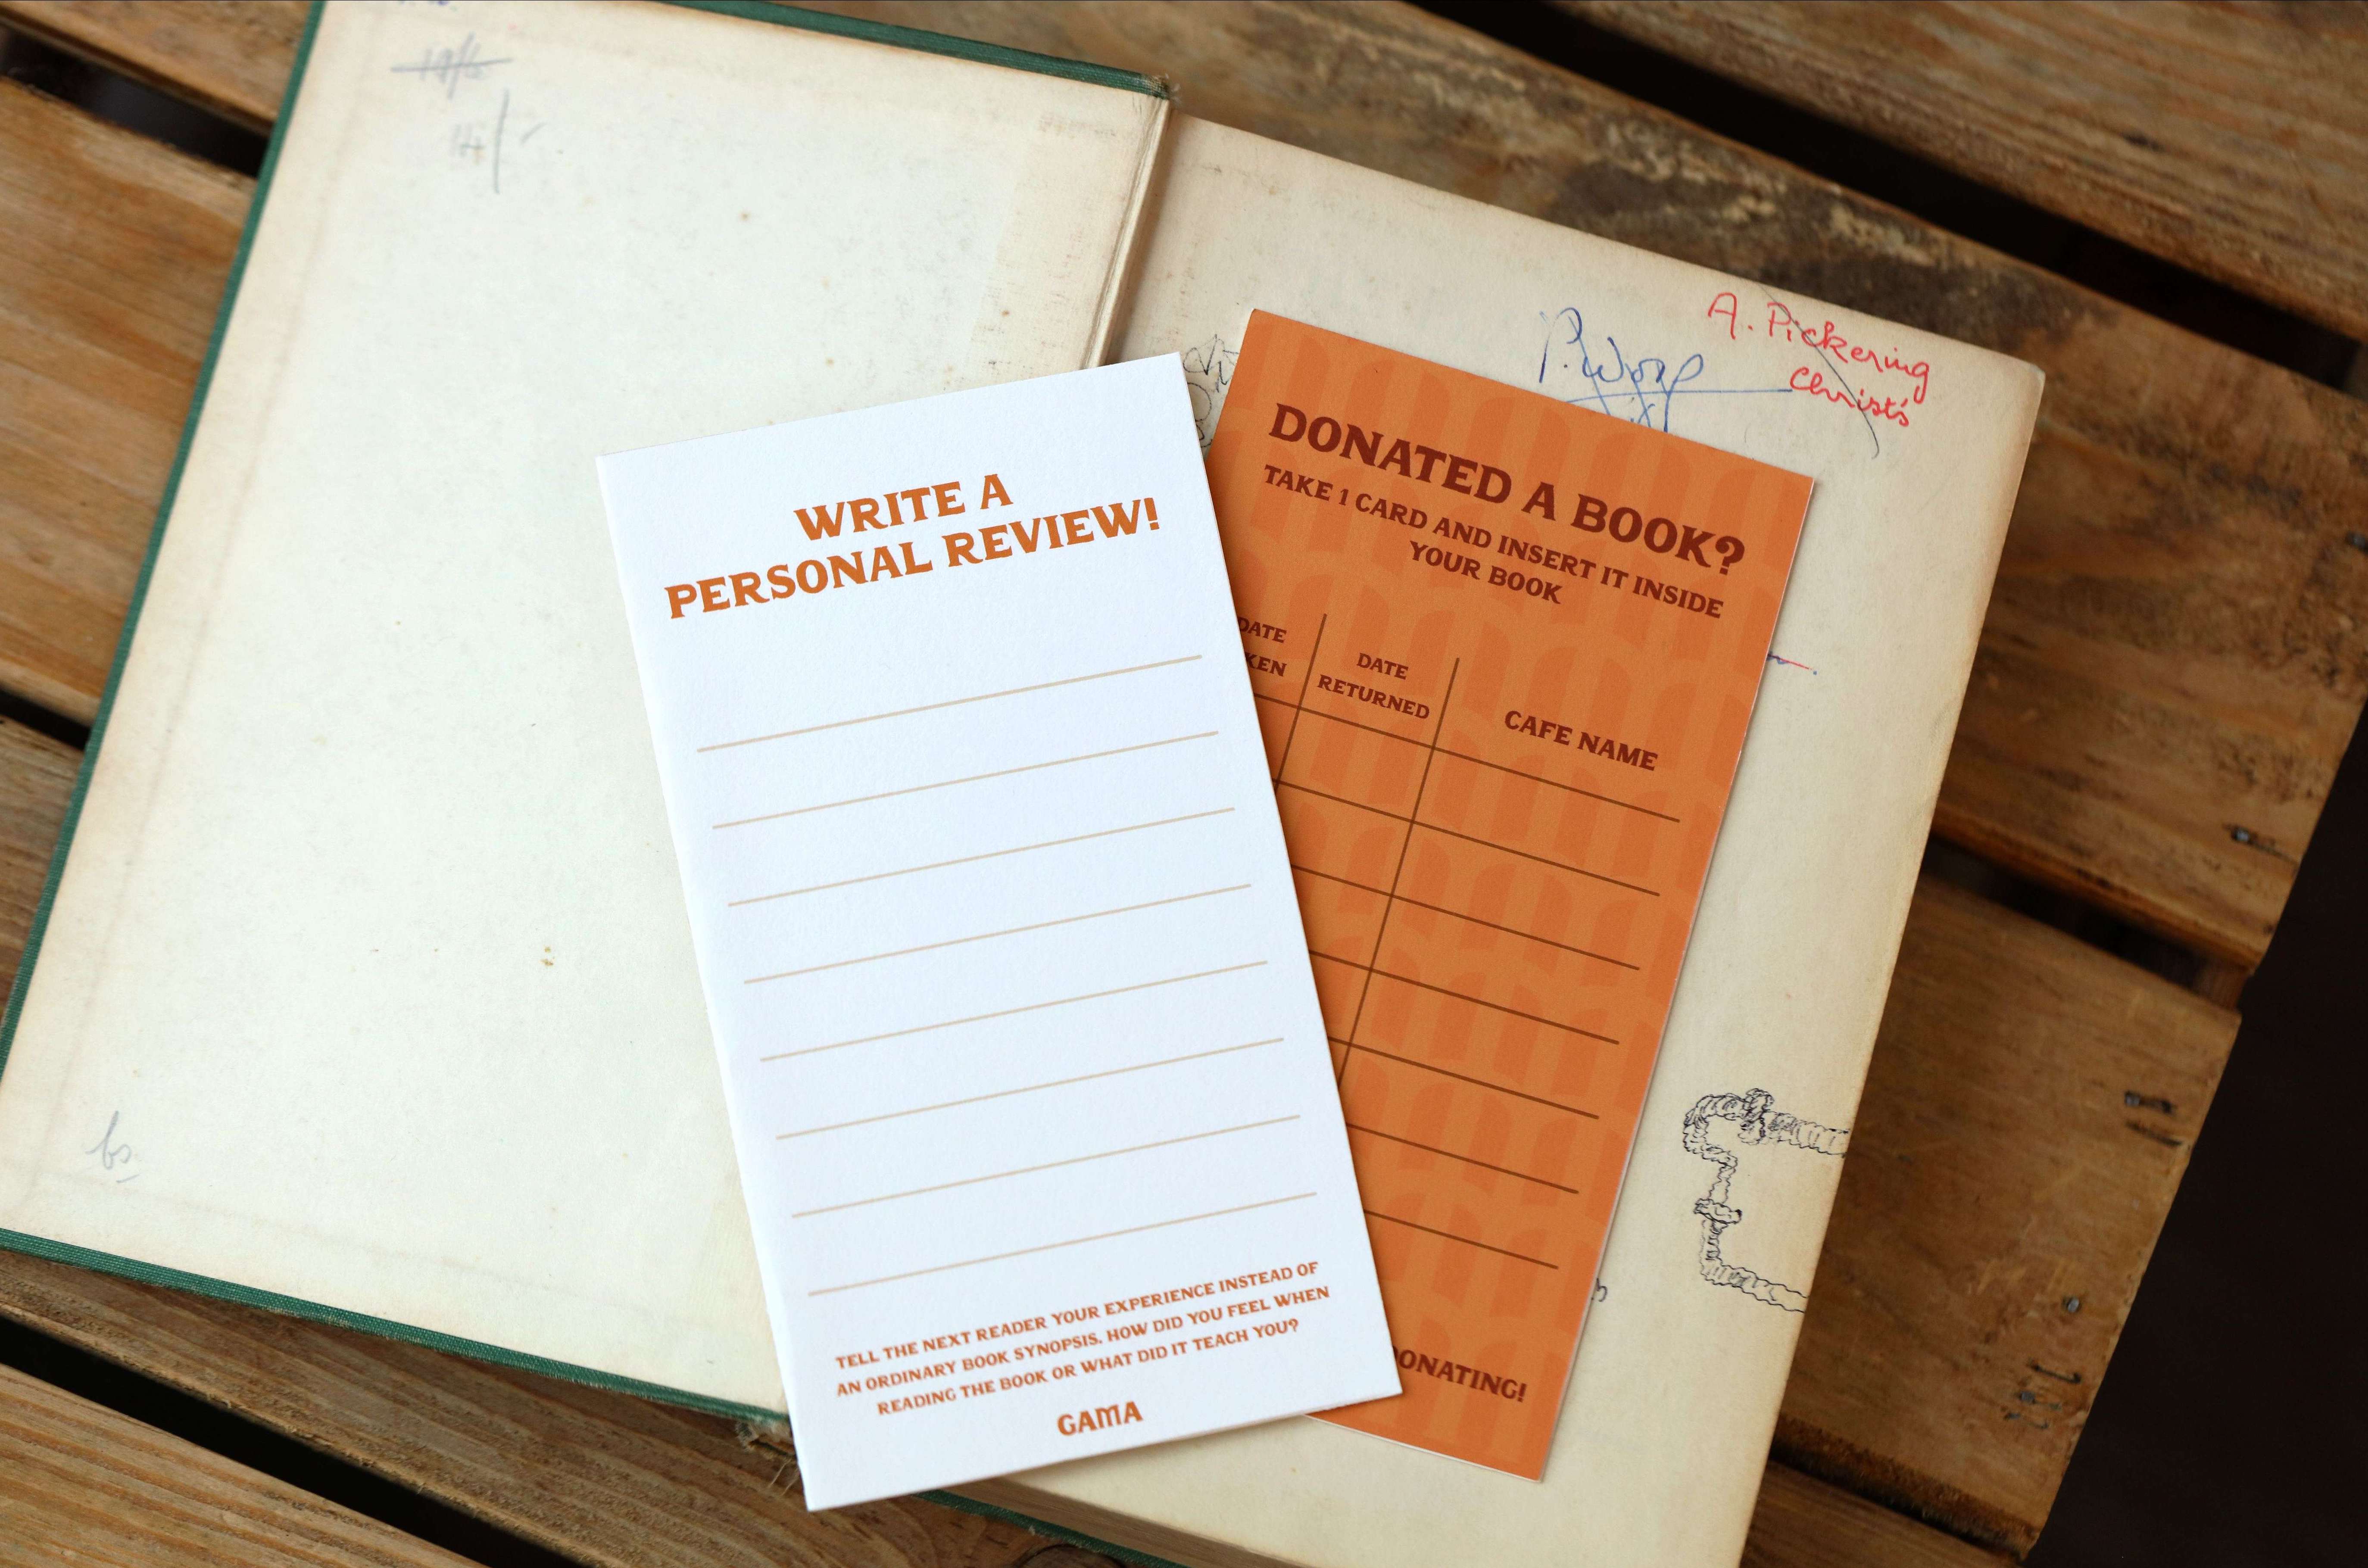 A. Pickering
Christ's
P. Wong
WRITE A
PERSONAL REVIEW!
TELL THE NEXT READER YOUR EXPERIENCE INSTEAD OF
AN ORDINARY BOOK SYNOPSIS. HOW DID YOU FEEL WHEN
READING THE BOOK OR WHAT DID IT TEACH YOU?
GAMA
DONATED A BOOK?
TAKE 1 CARD AND INSERT IT INSIDE
YOUR BOOK
DATE
DATE
RETURNED
CAFE NAME
DONATING!
bs